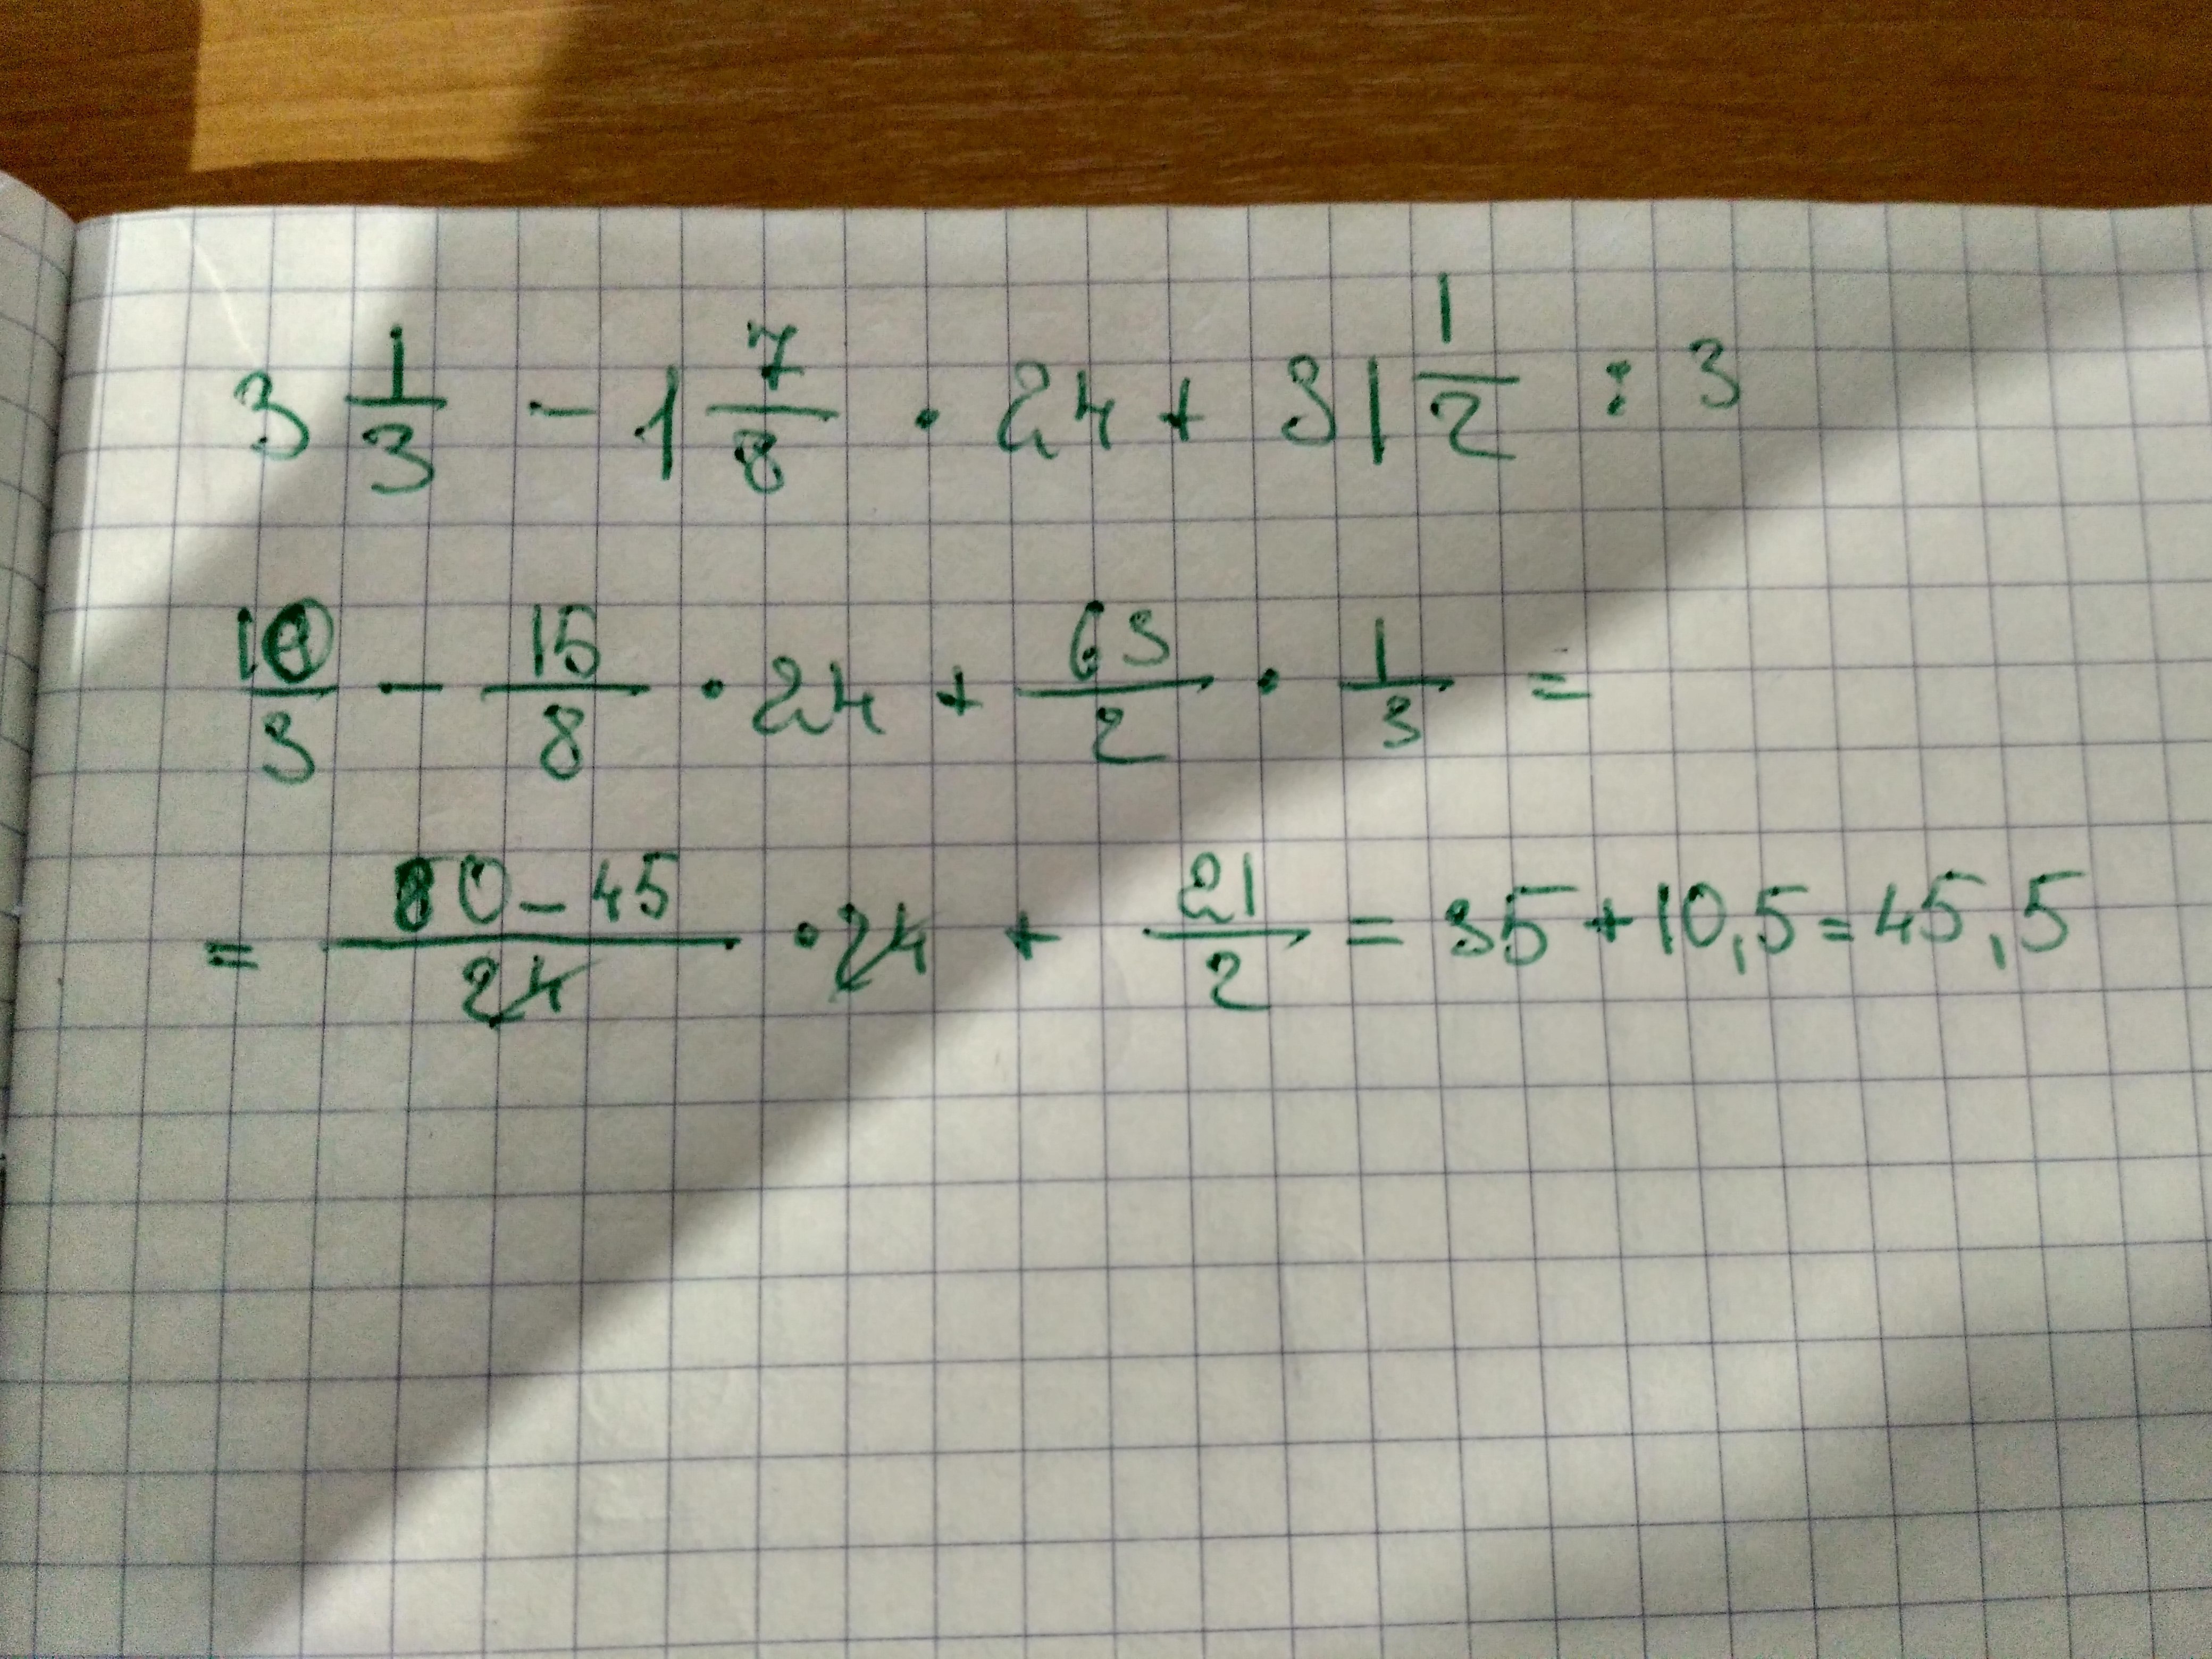 3 1/3 - 1 7/8 · 24 + 31 1/2 : 3
10/3 - 15/8 · 24 + 63/2 · 1/3 =
= 80-45/24 · 24 + 21/2 = 35 + 10,5 = 45,5